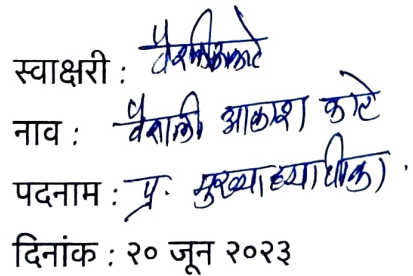 स्वाक्षरी :
नाव : वैशाली आकाश काटे
पदनाम : प्र. मुख्याध्यापीका
दिनांक : २० जून २०२३